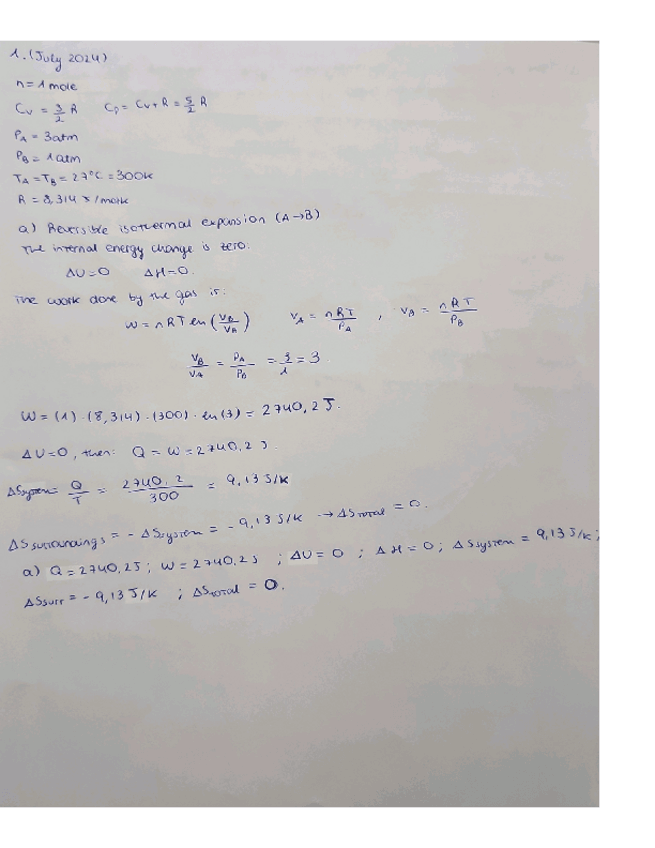 1. (July 2024)
n = 1 mole
Cv = 3/2 R    Cp = Cv + R = 5/2 R
PA = 3atm
PB = 1 atm
TA = TB = 27°C = 300K
R = 8,314 J/molK
a) Reversible isothermal expansion (A→B)
The internal energy change is zero:
ΔU=0    ΔH=0.
The work done by the gas is:
W = nRT ln(VB/VA)    VA = nRT/PA , VB = nRT/PB
VB/VA = PA/PB = 3/1 = 3
W = (1)·(8,314)·(300)·ln(3) = 2740,2 J.
ΔU=0, then: Q = W = 2740,2 J.
ΔSsystem = Q/T = 2740,2/300 = 9,13 J/K
ΔSsurroundings = - ΔSsystem = - 9,13 J/K → ΔStotal = 0.
a) Q = 2740,2J ; W = 2740,2J ; ΔU = 0 ; ΔH = 0 ; ΔSsystem = 9,13 J/K ;
ΔSsurr = - 9,13 J/K ; ΔStotal = 0.